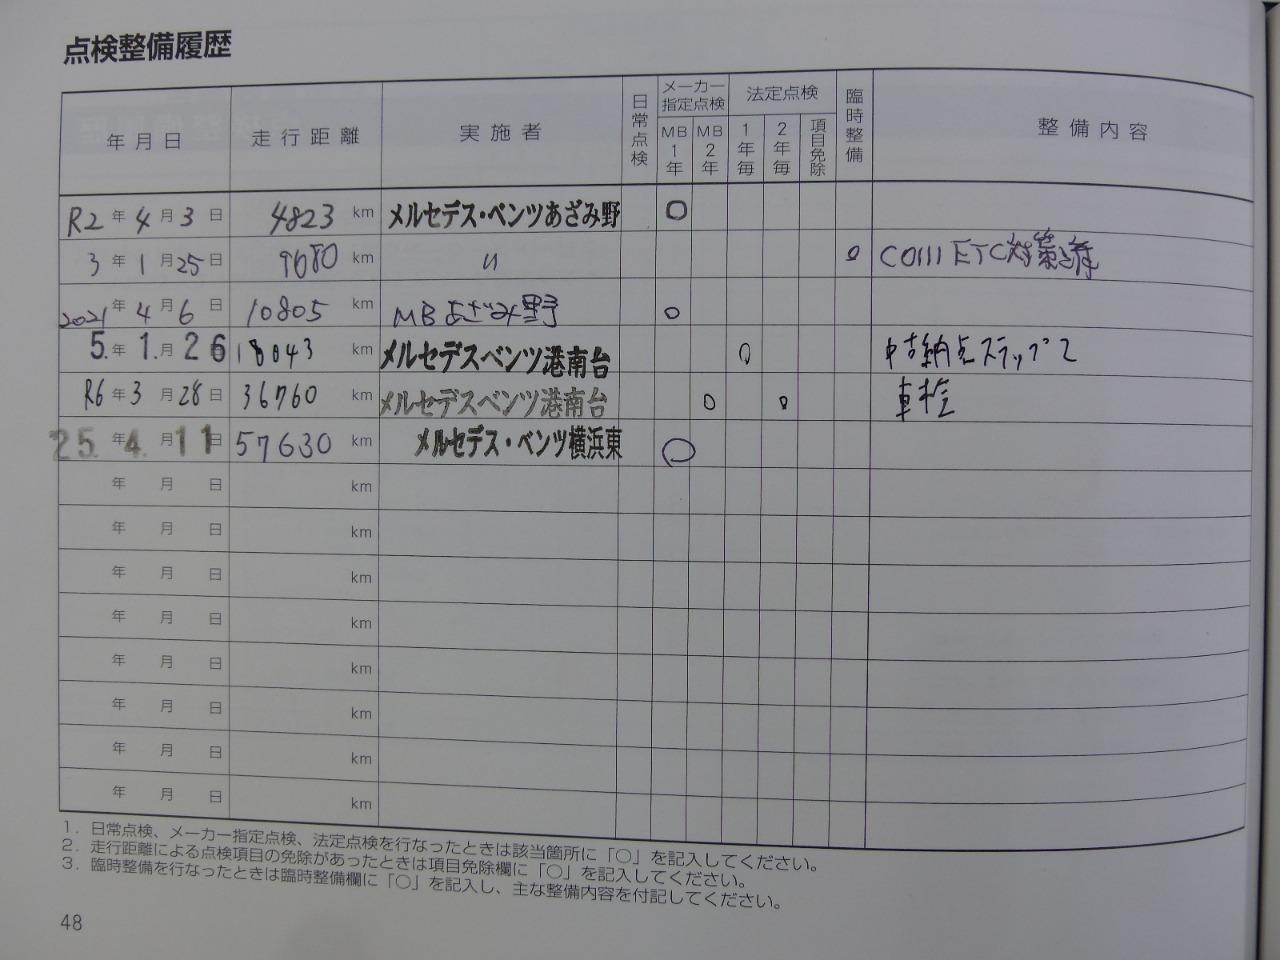 点検整備履歴
年月日 走行距離 実施者 日常点検 メーカー指定点検 MB1年 MB2年 法定点検 1年毎 2年毎 項目免除 臨時整備 整備内容
R2年4月3日 4823 km メルセデス・ベンツあざみ野 ○
3年1月25日 9680 km 〃 ○ COMI ETC対策
2021年4月6日 10805 km MBあざみ野 ○
5.年1.月26 18043 km メルセデスベンツ港南台 ○ 中古納点ステップ2
R6年3月28日 36760 km メルセデスベンツ港南台 ○ ○ 車検
25.年4.月11日 57630 km メルセデス・ベンツ横浜東 ○
年 月 日 km
年 月 日 km
年 月 日 km
年 月 日 km
年 月 日 km
年 月 日 km
年 月 日 km
年 月 日 km
1. 日常点検、メーカー指定点検、法定点検を行なったときは該当箇所に「○」を記入してください。
2. 走行距離による点検項目の免除があったときは項目免除欄に「○」を記入してください。
3. 臨時整備を行なったときは臨時整備欄に「○」を記入し、主な整備内容を付記してください。
48